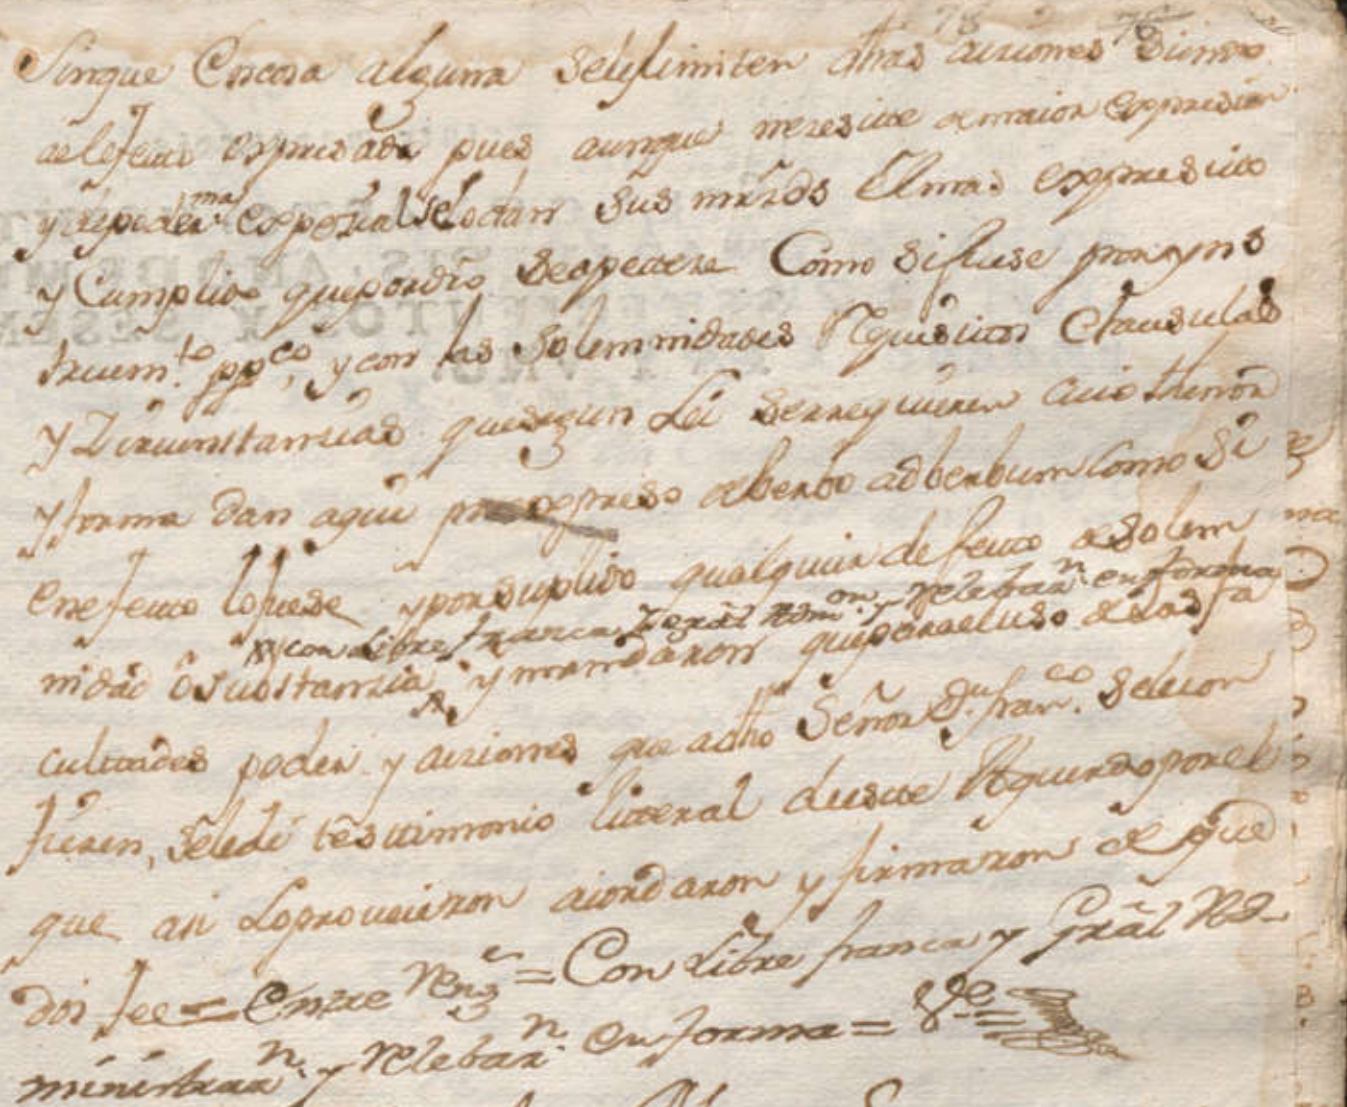 78 78
Sinque Encosa alguna seleslimiten dhas acciones Siendo
aelefecto espresado pues aunque nezesite demaior expresion
y depoder mas espezial selo dan sus mrds El mas expresivo
y Cumplido quepordro seapetezca Como sifuese porynS
trum.to pp.co, y con las solemnidades Requisitos Clausulas
y Zircunstanzias quesegun Lei serrequieren cuio thenor
y forma dan aqui por expreso deberbo adberbum como si
enefecto lofuese y porsuplido qualquier defecto desolem
y con Libre franca y gral Adm.on y relebaz.n en forma
nidad o sustanzia y mandaron queparaeluso delasfa
cultades poder y acciones que adho Señor D.n fran.co seleCon
fieren, seledé testimonio litteral deeste Aquerdo porel
que asi Loproveieron acordaron y firmaron de que
doi fee = Entre Reng.es = Con Libre franca y Grâl Ad-
ministraz.n y relebaz.n en forma = Ve =